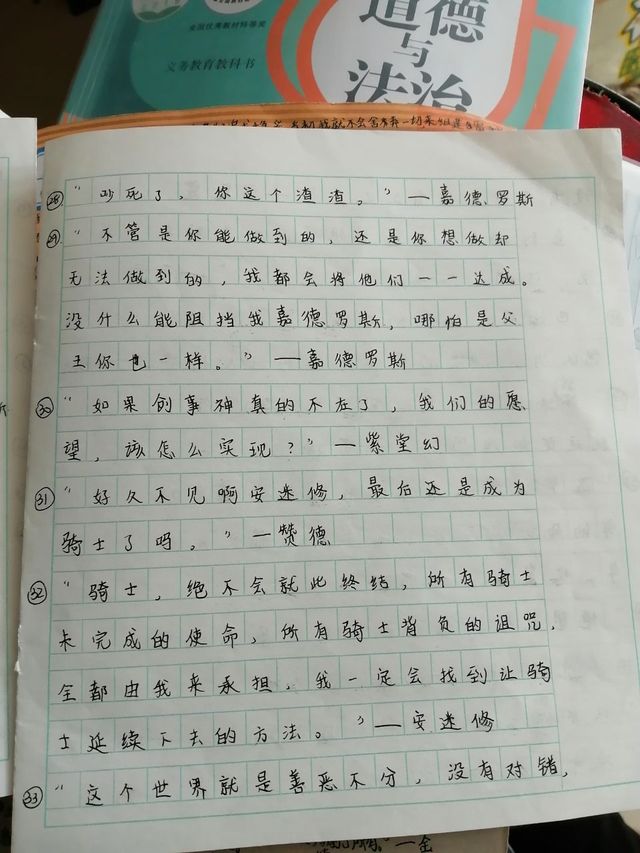 道德
与
法治
全国优秀教材特等奖
义务教育教科书
㉘ “吵死了，你这个渣渣。”—嘉德罗斯
㉙ “不管是你能做到的，还是你想做却
无法做到的，我都会将他们一一达成。
没什么能阻挡我嘉德罗斯，哪怕是父
王你也一样。”—嘉德罗斯
㉚ “如果创事神真的不在了，我们的愿
望，该怎么实现？”—紫堂幻
㉛ “好久不见啊安迷修，最后还是成为
骑士了吗。”—赞德
㉜ “骑士，绝不会就此终结，所有骑士
未完成的使命，所有骑士背负的诅咒，
全都由我来承担，我一定会找到让骑
士延续下去的方法。”—安迷修
㉝ “这个世界就是善恶不分，没有对错，